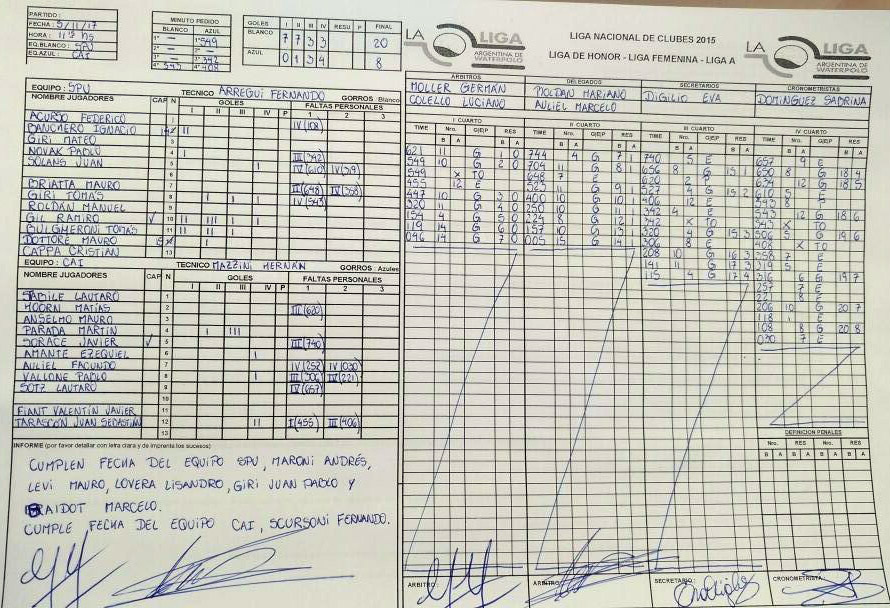 PARTIDO :
FECHA : 5/11/17
HORA : 11:15 HS
EQ.BLANCO : SPU
EQ.AZUL : CAI
MINUTO PEDIDO
BLANCO AZUL
1° — 1° 549
2° — —
3° — 3° 342
4° 543 4° 408
GOLES I II III IV RESU P FINAL
BLANCO 7 7 3 3 20
AZUL 0 1 3 4 8
LA LIGA
ARGENTINA DE
WATERPOLO
LIGA NACIONAL DE CLUBES 2015
LIGA DE HONOR - LIGA FEMENINA - LIGA A
LA LIGA
ARGENTINA DE
WATERPOLO
ARBITROS DELEGADOS SECRETARIOS CRONOMETRISTAS
MOLLER GERMÁN ROLDAN MARIANO DIGILIO EVA DOMINGUEZ SABRINA
COLELLO LUCIANO AULIEL MARCELO
EQUIPO : SPU TECNICO ARREGUI FERNANDO GORROS : Blanco
NOMBRE JUGADORES CAP N GOLES FALTAS PERSONALES
I II III IV P 1 2 3
ACURSO FEDERICO 1
BANCHERO IGNACIO II IV(108)
GIRI MATEO
NOVAK PABLO 4 I III(342)
SOLANS JUAN 5 I IV(610) IV(319)
BRIATTA MAURO II(648) IV(358)
GIRI TOMÁS 8 I I I IV(543)
ROLDÁN MANUEL 9
GIL RAMIRO 10 II III I II
BULGHERONI TOMÁS 11 II II I
DOTTORE MAURO I
CAPPA CRISTIAN
EQUIPO : CAI TECNICO MAZZINI HERNÁN GORROS : Azules
NOMBRE JUGADORES CAP N GOLES FALTAS PERSONALES
I II III IV P 1 2 3
STABILE LAUTARO 1
HOORN MATÍAS 2 III(620)
ANSELMO MAURO 3
PARADA MARTÍN 4 I III
SORACE JAVIER 5 III(740)
AMANTE EZEQUIEL 6 I
AULIEL FACUNDO 7 IV(257) IV(030)
VALLONE PABLO 8 I III(306) IV(221)
SOTZ LAUTARO 9 IV(657)
10
FIANT VALENTÍN JAVIER 11
TARASCON JUAN SEBASTIÁN 12 II I(455) III(406)
13
I CUARTO II CUARTO III CUARTO IV CUARTO
TIME Nro. G/E/P RES
B A B A
621 11 G 1 0
549 10 G 2 0
549 X TO
455 12 E
447 10 G 3 0
320 11 G 4 0
154 4 G 5 0
119 14 G 6 0
046 14 G 7 0
744 4 G 7 1
704 11 G 8 1
648 7 E
523 11 G 9 1
400 10 G 10 1
250 10 G 11 1
224 8 G 12 1
157 10 G 13 1
005 15 G 14 1
740 5 E
656 8 G 15 1
620 2 E
527 4 G 15 2
406 12 E
342 4 E
342 X TO
320 4 G 15 3
306 8 E
208 10 G 16 3
141 11 G 17 3
115 4 G 17 4
657 9 E
650 8 G 18 4
634 12 G 18 5
610 5 E
543 8 E
543 12 G 18 6
543 X
506 5 G 19 6
408 X TO
358 7 E
319 5 E
316 6 G 19 7
257 7 E
221 8 E
206 10 G 20 7
118 1 E
108 8 G 20 8
030 7 E
DEFINICION PENALES
Nro. RES Nro. RES
B A B A B A B A
INFORME (por favor detallar con letra clara y de imprenta los sucesos)
CUMPLEN FECHA DEL EQUIPO SPU, MARONI ANDRÉS,
LEVI MAURO, LOVERA LISANDRO, GIRI JUAN PABLO Y
RAIDOT MARCELO.
CUMPLE FECHA DEL EQUIPO CAI, SCURSONI FERNANDO.
ARBITRO : ARBITRO : SECRETARIO : CRONOMETRISTA :